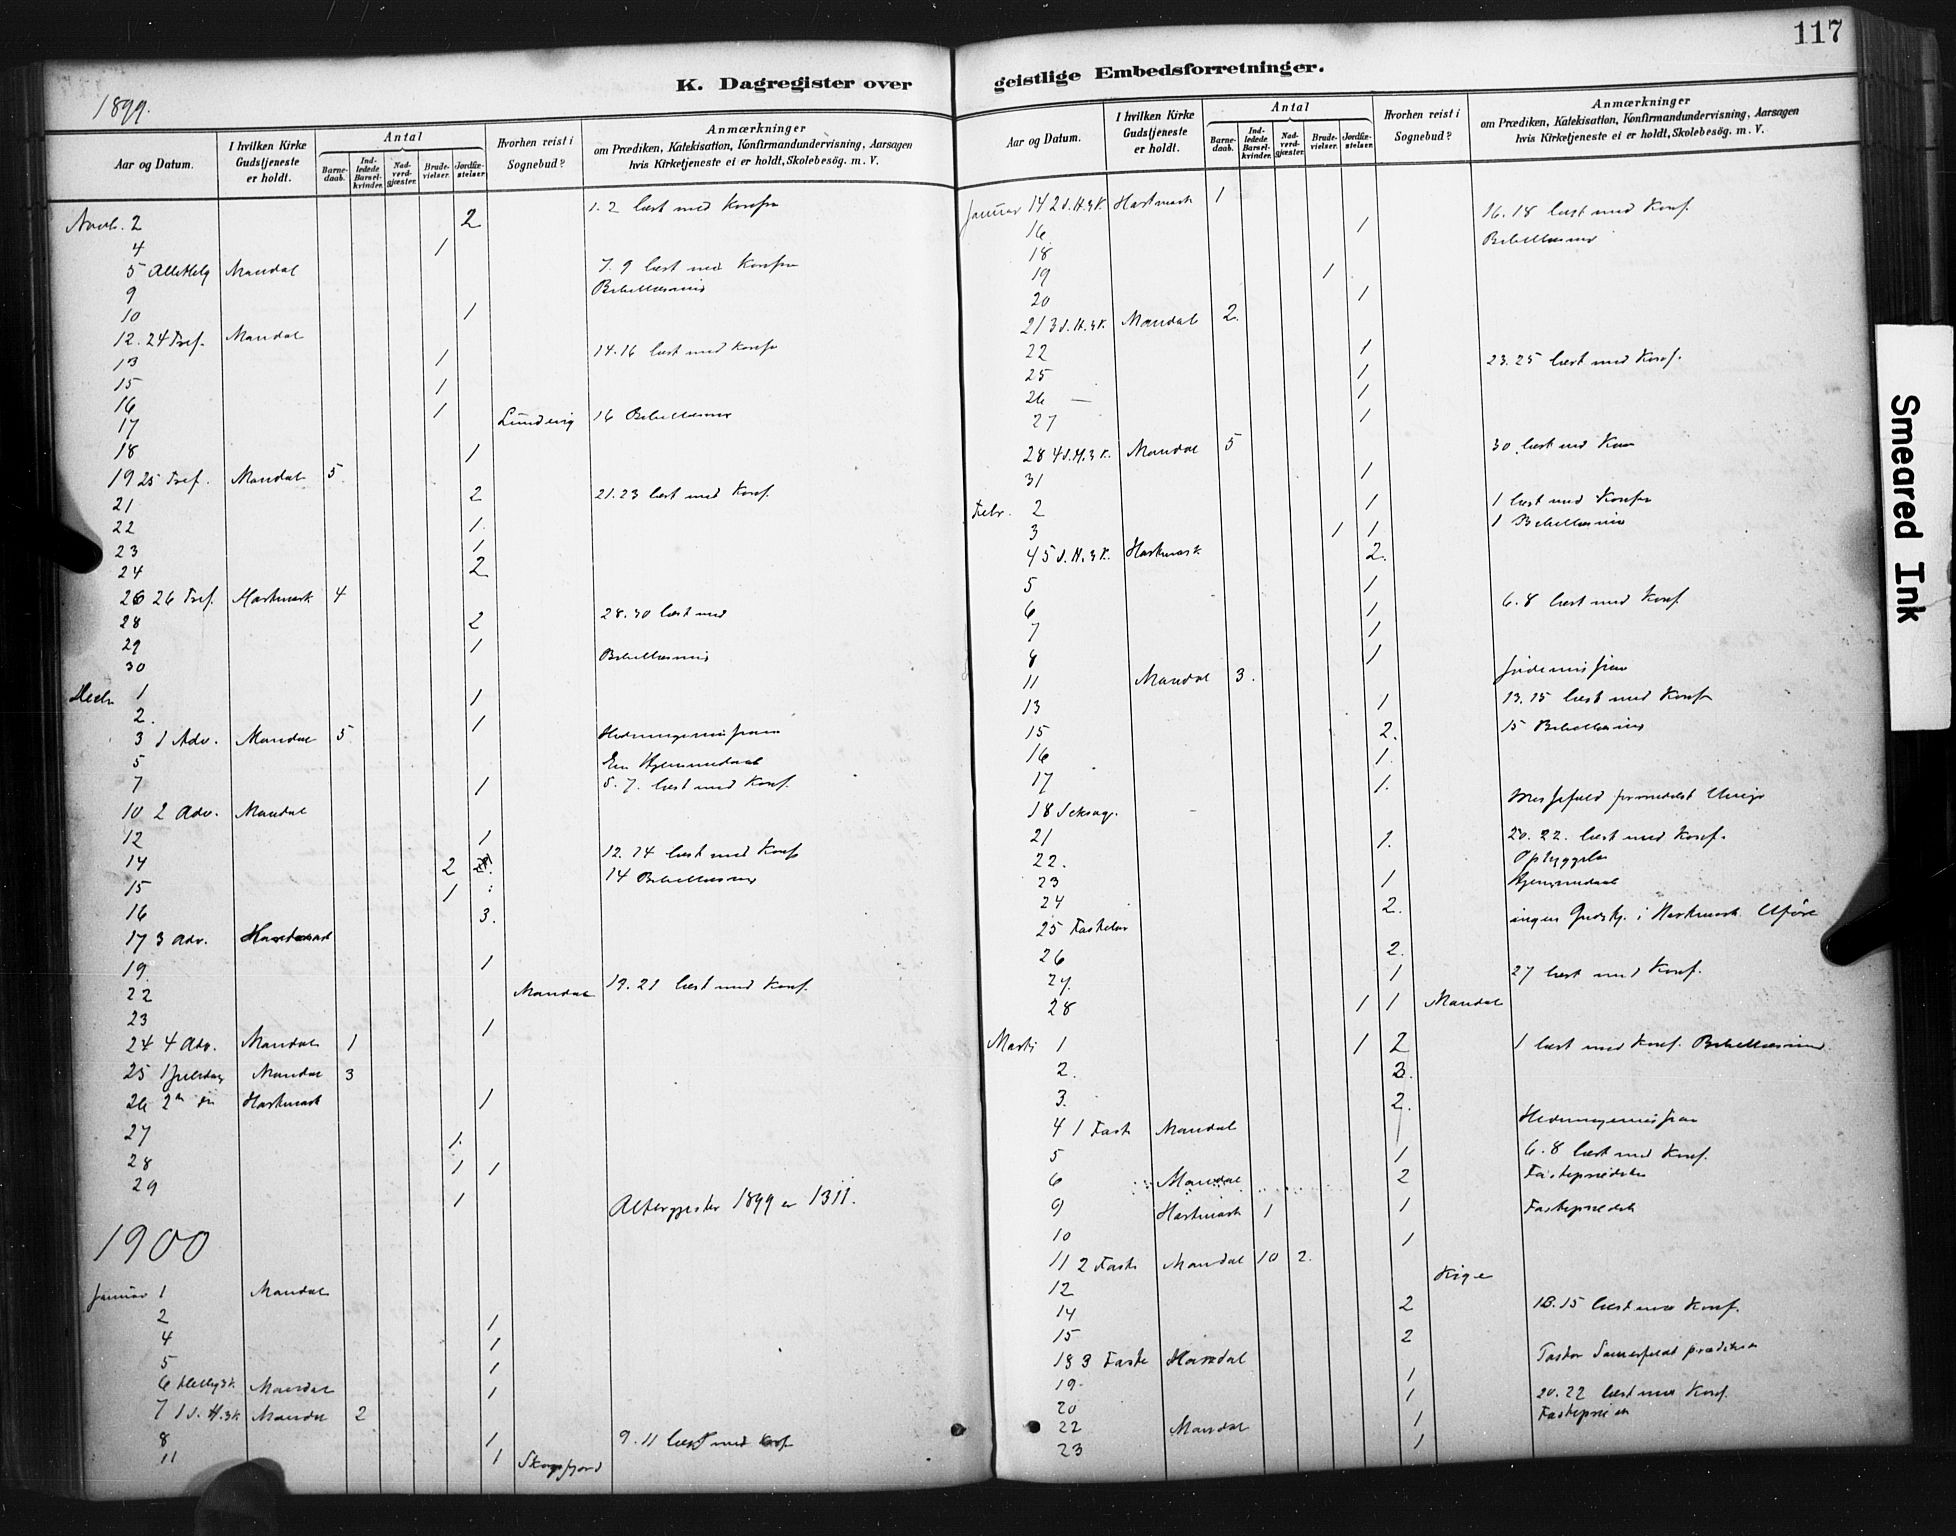 117
K. Dagregister over geistlige Embedsforretninger.
1899.
Aar og Datum. I hvilken Kirke Gudstjeneste er holdt. Antal Barnedaab. Indledede Barselkvinder. Nadverdgjæster. Brudevielser. Jordfæstelser. Hvorhen reist i Sognebud? Anmærkninger om Prædiken, Katekisation, Konfirmandundervisning, Aarsagen hvis Kirketjeneste ei er holdt, Skolebesög. m. V.
Novb. 2 2 1. 2 læst med Konfn
4 1
5 AlleHelg Mandal 7. 9 læst med Konfn
9 Bibellæsning
10 1
12. 24 Tref. Mandal
13 1 14.16 læst med Konfn
15 1
16 1
17 Lundevig 16 Bibellæsning
18 1
19 25 Tref. Mandal 5.
21 2 21.23 læst med Konf.
22 1.
23 1
24 2
26 26 Tref. Hartmark 4
28 2 28.30 læst med
29 1
30 Bibellæsning
Decbr 1 1
2. 1
3 1 Adv. Mandal 5 Hedningemission
5 Em Hjemmedaab
7 1 5. 7. læst med Konf.
10 2 Adv. Mandal
12 1
14 2 12. 14 læst med Konf
15 1 14 Bibellæsning
16 3.
17 3 Adv. Hartmark
19 1
22 Mandal 19. 21 læst med Konf.
23 1
24 4 Adv. Mandal 1
25 1 Juledag Mandal 3
26 2den Hartmark 1
27 1.
28 1 1
29 1 Altergjester 1899 er 1311.
1900
Januar 1 Mandal
2 1
4 1
5 1
6 Hellig3K. Mandal 1
7 1 S. H.3K Mandal 2
8 1 9. 11 læst med Konf
11 1 Skogsfjord
Aar og Datum. I hvilken Kirke Gudstjeneste er holdt. Antal Barnedaab. Indledede Barselkvinder. Nadverdgjæster. Brudevielser. Jordfæstelser. Hvorhen reist i Sognebud? Anmærkninger om Prædiken, Katekisation, Konfirmandundervisning, Aarsagen hvis Kirketjeneste ei er holdt, Skolebesög. m. V.
Januar 14 2 S. H.3K. Hartmark 1
16 1 16. 18 læst med Konf.
18 Bibellæsning
19 1
20 1
21 3 S. H.3K. Mandal 2.
22 1 23. 25 læst med Konf.
25 1
26 — 1
27 1
28 4 S. H.3 K. Mandal 5 30 læst med Kon
31 1
Febr. 2 1 1 læst med Konfn
3 1 1 1 Bibellæsning
4 5 S. H.3K. Hartmark 2.
5 1
6 1 6. 8 læst med Konf.
7 1
8 1
11 Mandal 3. Jødemission
13 1 13. 15 læst med Konf
15 2. 15 Bibellæsning
16 1.
17 1.
18 Seksag. Messefald formedelst Uveir
21 1. 20. 22. læst med Konf.
22. Opbyggelse
23 1 Hjemmedaab
24 2.
25 Fastelav ingen Gudstj. i Hartmark Uføre
26 2.
27. 1 27 læst med Konf.
28 1 1 Mandal
Marts 1 1 2 1 læst med Konf. Bibellæsning.
2. 3.
3. 2.
4 1 Fast Mandal Hedningemission
5 1 6. 8 læst med Konf.
6 Mandal 2 Fasteprædiken
9 Hartmark 1 1 Fasteprædik
10 1
11 2 Faste Mandal 10 2.
12 Kige
14 2 13. 15 læst med Konf.
15 2
18 3 Faste Mandal Pastor prædikede
19 1
20 1 20. 22 læst med Konf.
22 Mandal 1
23 1
Smeared Ink